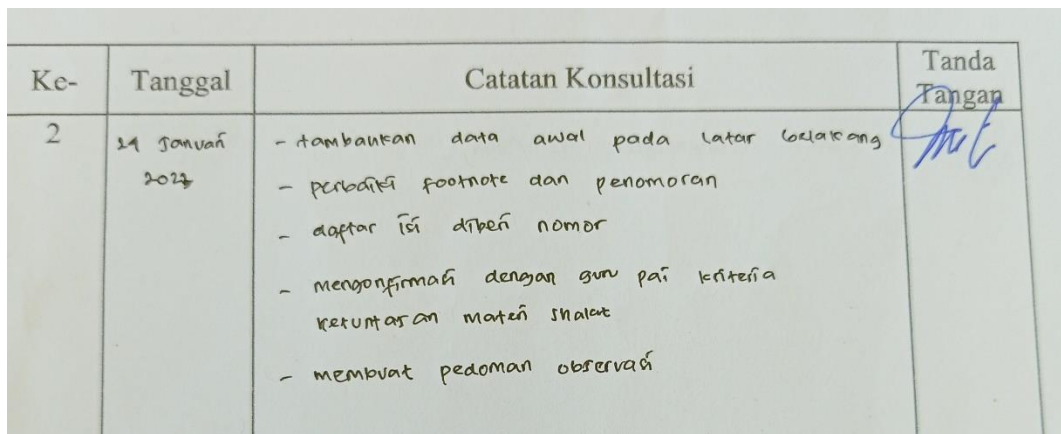 Ke- Tanggal Catatan Konsultasi Tanda Tangan
2 Januari - tambahkan data awal pada latar belakang
- perbaiki footnote dan penomoran
- daftar isi diberi nomor
- mengonfirmasi dengan guru pai kriteria
ketuntasan materi shalat
- membuat pedoman observasi